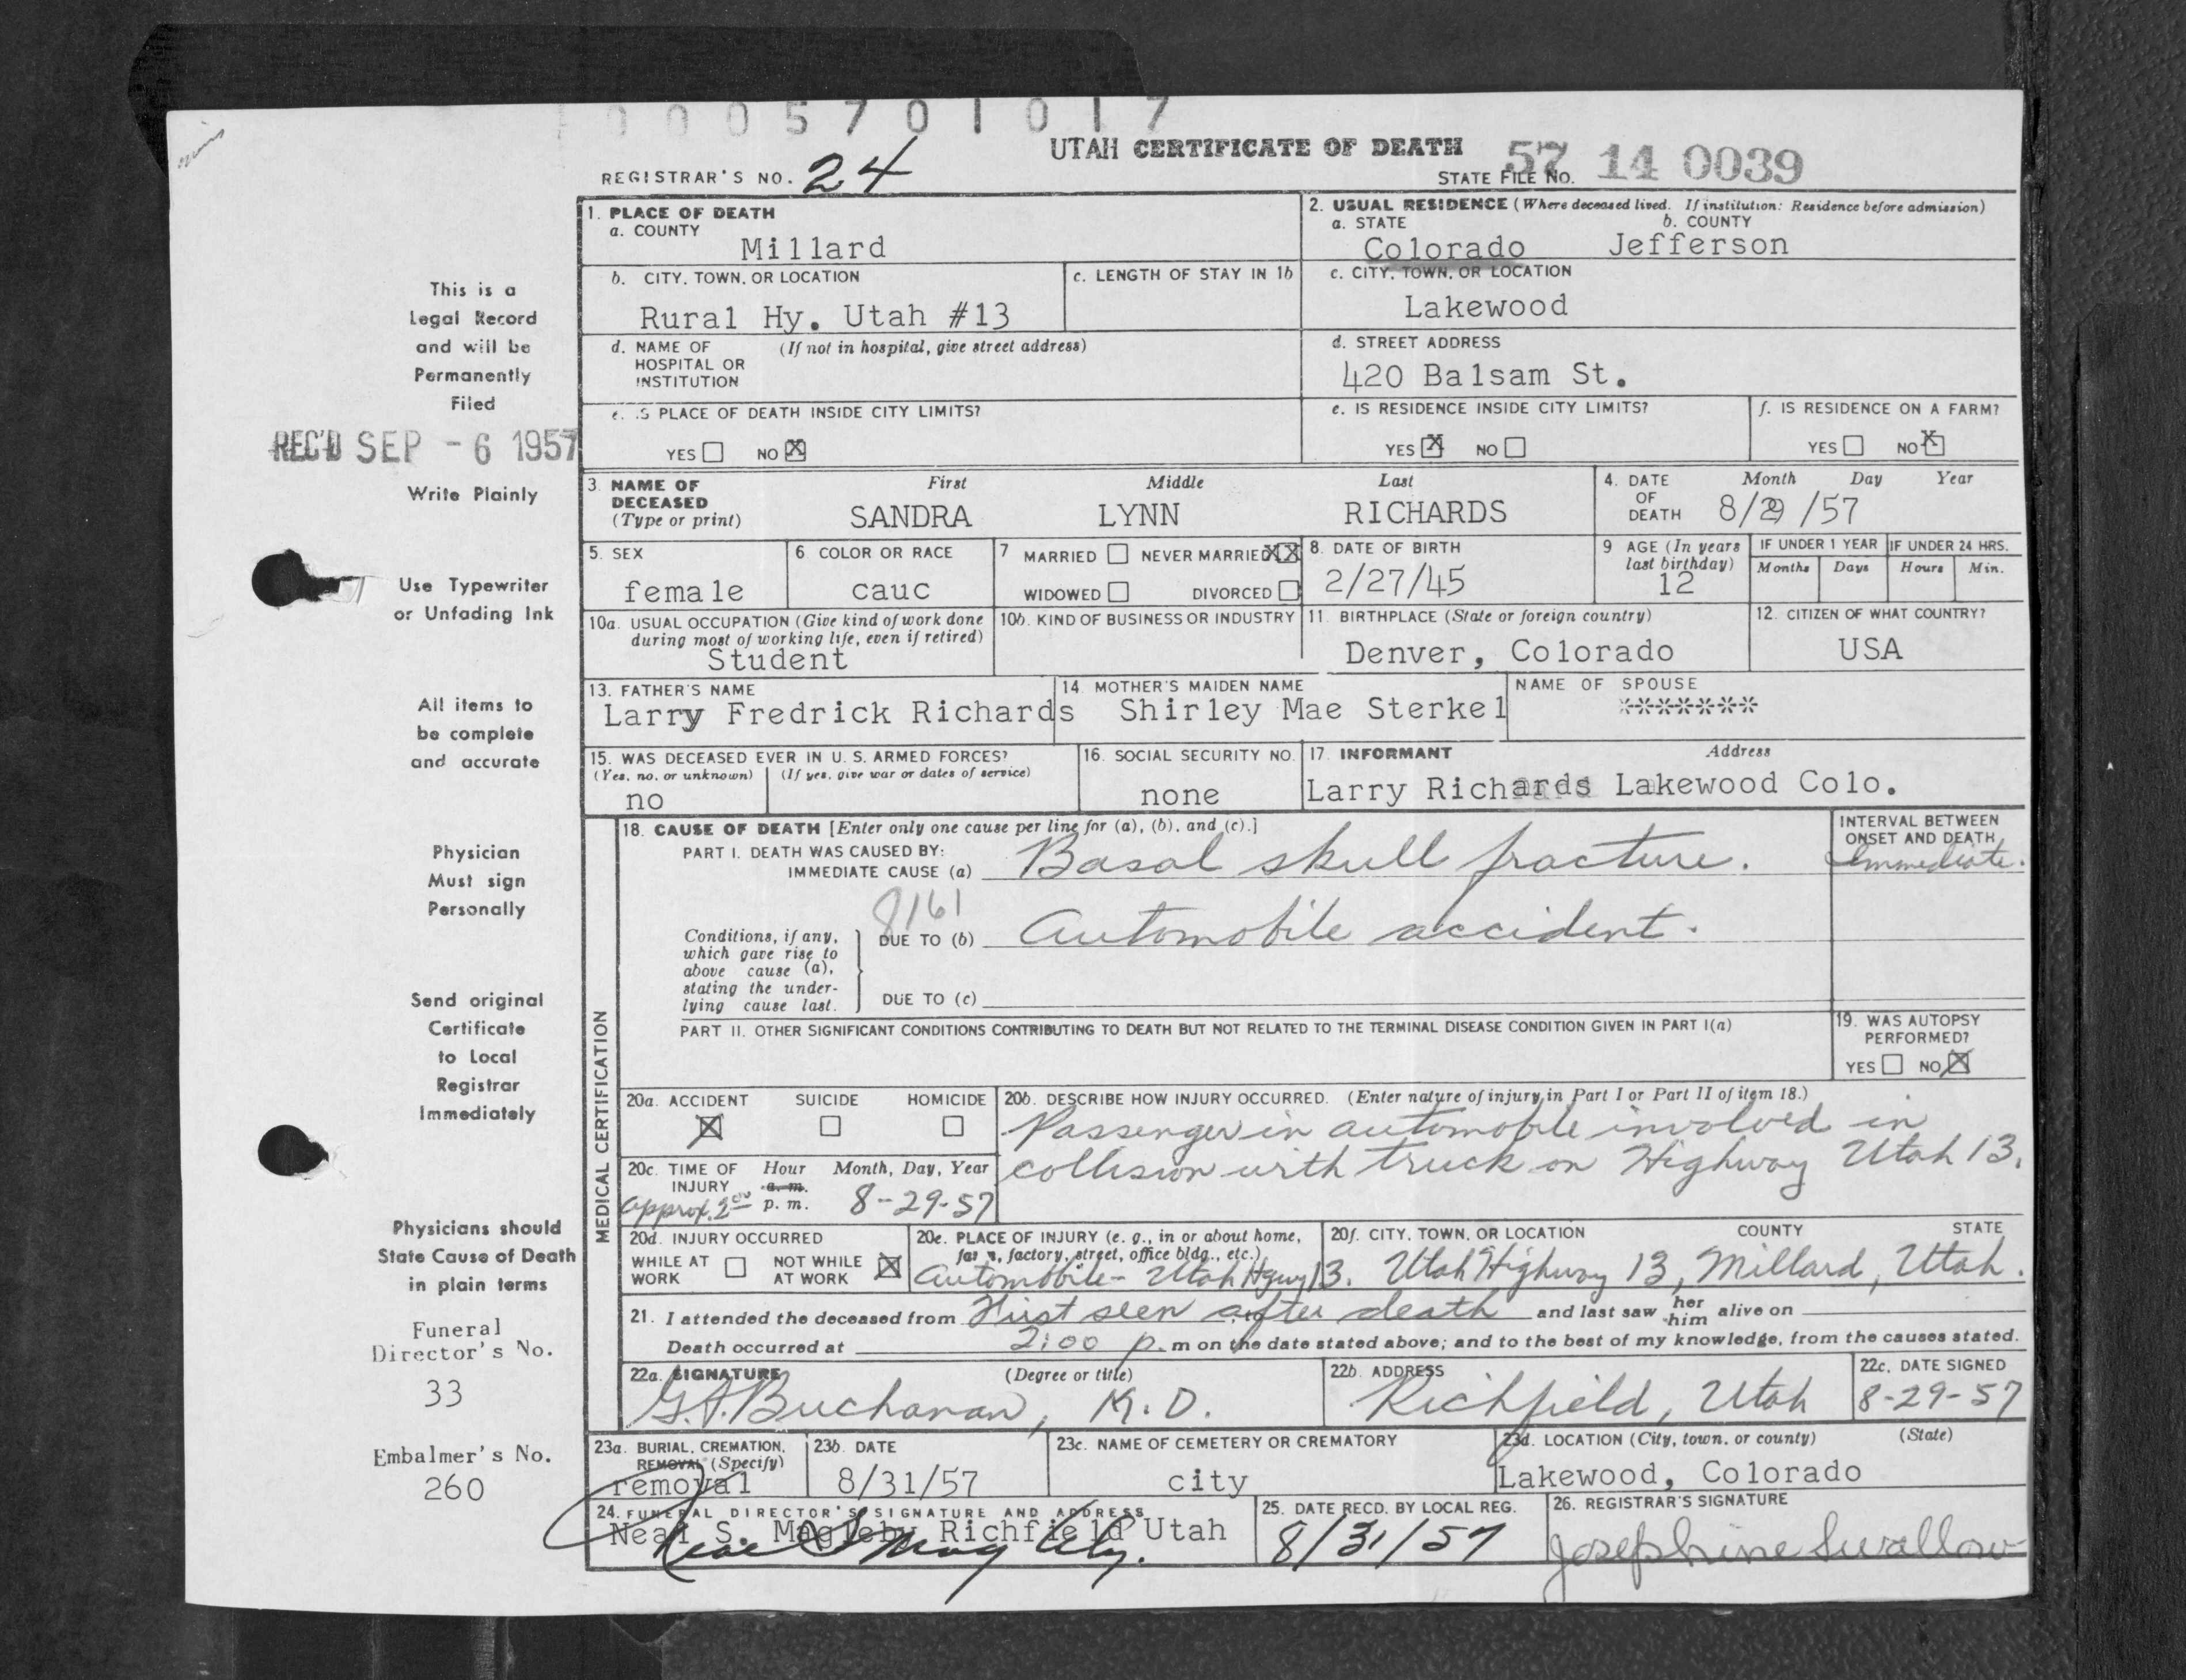 0005701017
UTAH CERTIFICATE OF DEATH
REGISTRAR'S NO. 24
STATE FILE NO. 57 14 0039
1. PLACE OF DEATH
a. COUNTY
Millard
2. USUAL RESIDENCE (Where deceased lived. If institution: Residence before admission)
a. STATE b. COUNTY
Colorado Jefferson
b. CITY, TOWN, OR LOCATION
Rural Hy. Utah #13
c. LENGTH OF STAY IN 1b
c. CITY, TOWN, OR LOCATION
Lakewood
d. NAME OF (If not in hospital, give street address)
HOSPITAL OR
INSTITUTION
d. STREET ADDRESS
420 Balsam St.
e. IS PLACE OF DEATH INSIDE CITY LIMITS?
YES NO X
e. IS RESIDENCE INSIDE CITY LIMITS?
YES X NO
f. IS RESIDENCE ON A FARM?
YES NO X
3. NAME OF DECEASED
(Type or print)
First Middle Last
SANDRA LYNN RICHARDS
4. DATE OF DEATH
Month Day Year
8/29/57
5. SEX
female
6. COLOR OR RACE
cauc
7 MARRIED NEVER MARRIED XX
WIDOWED DIVORCED
8. DATE OF BIRTH
2/27/45
9 AGE (In years last birthday)
12
IF UNDER 1 YEAR
Months Days
IF UNDER 24 HRS.
Hours Min.
10a. USUAL OCCUPATION (Give kind of work done
during most of working life, even if retired)
Student
10b. KIND OF BUSINESS OR INDUSTRY
11. BIRTHPLACE (State or foreign country)
Denver, Colorado
12. CITIZEN OF WHAT COUNTRY?
USA
13. FATHER'S NAME
Larry Fredrick Richards
14. MOTHER'S MAIDEN NAME
Shirley Mae Sterkel
NAME OF SPOUSE
*******
15. WAS DECEASED EVER IN U. S. ARMED FORCES?
(Yes, no, or unknown) (If yes, give war or dates of service)
no
16. SOCIAL SECURITY NO.
none
17. INFORMANT Address
Larry Richards Lakewood Colo.
MEDICAL CERTIFICATION
18. CAUSE OF DEATH [Enter only one cause per line for (a), (b), and (c).]
PART I. DEATH WAS CAUSED BY:
IMMEDIATE CAUSE (a) Basal skull fracture.
INTERVAL BETWEEN
ONSET AND DEATH
Immediate.
8161
Conditions, if any,
which gave rise to
above cause (a),
stating the under-
lying cause last.
DUE TO (b) Automobile accident.
DUE TO (c)
PART II. OTHER SIGNIFICANT CONDITIONS CONTRIBUTING TO DEATH BUT NOT RELATED TO THE TERMINAL DISEASE CONDITION GIVEN IN PART I(a)
19. WAS AUTOPSY
PERFORMED?
YES NO X
20a. ACCIDENT SUICIDE HOMICIDE
X
20b. DESCRIBE HOW INJURY OCCURRED. (Enter nature of injury in Part I or Part II of item 18.)
Passenger in automobile involved in
collision with truck on Highway Utah 13.
20c. TIME OF INJURY
Hour Month, Day, Year
a. m.
approx. 2:00 p. m. 8-29-57
20d. INJURY OCCURRED
WHILE AT WORK NOT WHILE AT WORK X
20e. PLACE OF INJURY (e. g., in or about home,
farm, factory, street, office bldg., etc.)
Automobile - Utah Hgwy 13.
20f. CITY, TOWN, OR LOCATION COUNTY STATE
Utah Highway 13, Millard, Utah.
21. I attended the deceased from First seen after death and last saw her him alive on
Death occurred at 2:00 p. m on the date stated above; and to the best of my knowledge, from the causes stated.
22a. SIGNATURE (Degree or title)
G.A. Buchanan, M.D.
22b. ADDRESS
Richfield, Utah
22c. DATE SIGNED
8-29-57
23a. BURIAL, CREMATION,
REMOVAL (Specify)
removal
23b. DATE
8/31/57
23c. NAME OF CEMETERY OR CREMATORY
city
23d. LOCATION (City, town, or county) (State)
Lakewood, Colorado
24. FUNERAL DIRECTOR'S SIGNATURE AND ADDRESS
Neal S. Magleby Richfield Utah
Neal S Magleby.
25. DATE RECD. BY LOCAL REG.
8/31/57
26. REGISTRAR'S SIGNATURE
Josephine Swallow
This is a
Legal Record
and will be
Permanently
Filed
REC'D SEP - 6 1957
Write Plainly
Use Typewriter
or Unfading Ink
All items to
be complete
and accurate
Physician
Must sign
Personally
Send original
Certificate
to Local
Registrar
Immediately
Physicians should
State Cause of Death
in plain terms
Funeral
Director's No.
33
Embalmer's No.
260